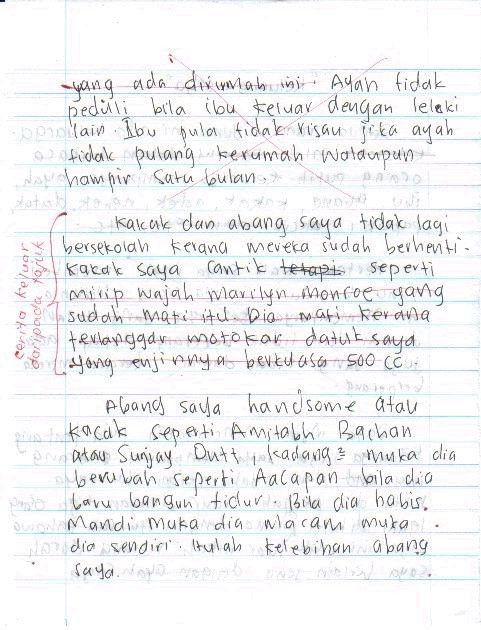 yang ada dirumah ini. Ayah tidak
peduli bila ibu keluar dengan lelaki
lain Ibu pula tidak risau jika ayah
tidak pulang kerumah walaupun
hampir satu bulan.
Kakak dan abang saya tidak lagi
bersekolah kerana mereka sudah berhenti.
Kakak saya cantik tetapi seperti
mirip wajah marilyn monroe yang
sudah mati itu. Dia mati kerana
terlanggar motokar datuk saya
yang enjinnya berkuasa 500 cc.
cerita keluar
daripada tajuk
Abang saya handsome atau
kacak seperti Amitabh Bachan
atau Sunjay Dutt kadang2 muka dia
berubah seperti Aacapan bila dia
baru bangun tidur. Bila dia habis
mandi muka dia macam muka
dia sendiri. Itulah kelebihan abang
saya.